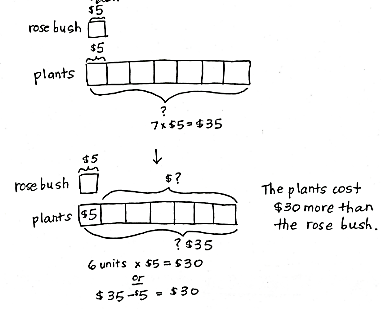 $5
rose bush
$5
plants
?
7 x $5 = $35
$5
$?
rose bush
plants $5
? $35
6 units x $5 = $30
or
$35 - $5 = $30
The plants cost
$30 more than
the rose bush.